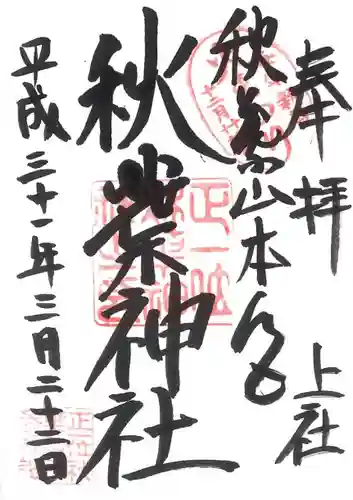 奉拝
上社
秋葉山本宮
秋葉神社
平成三十一年三月二十二日
正一位